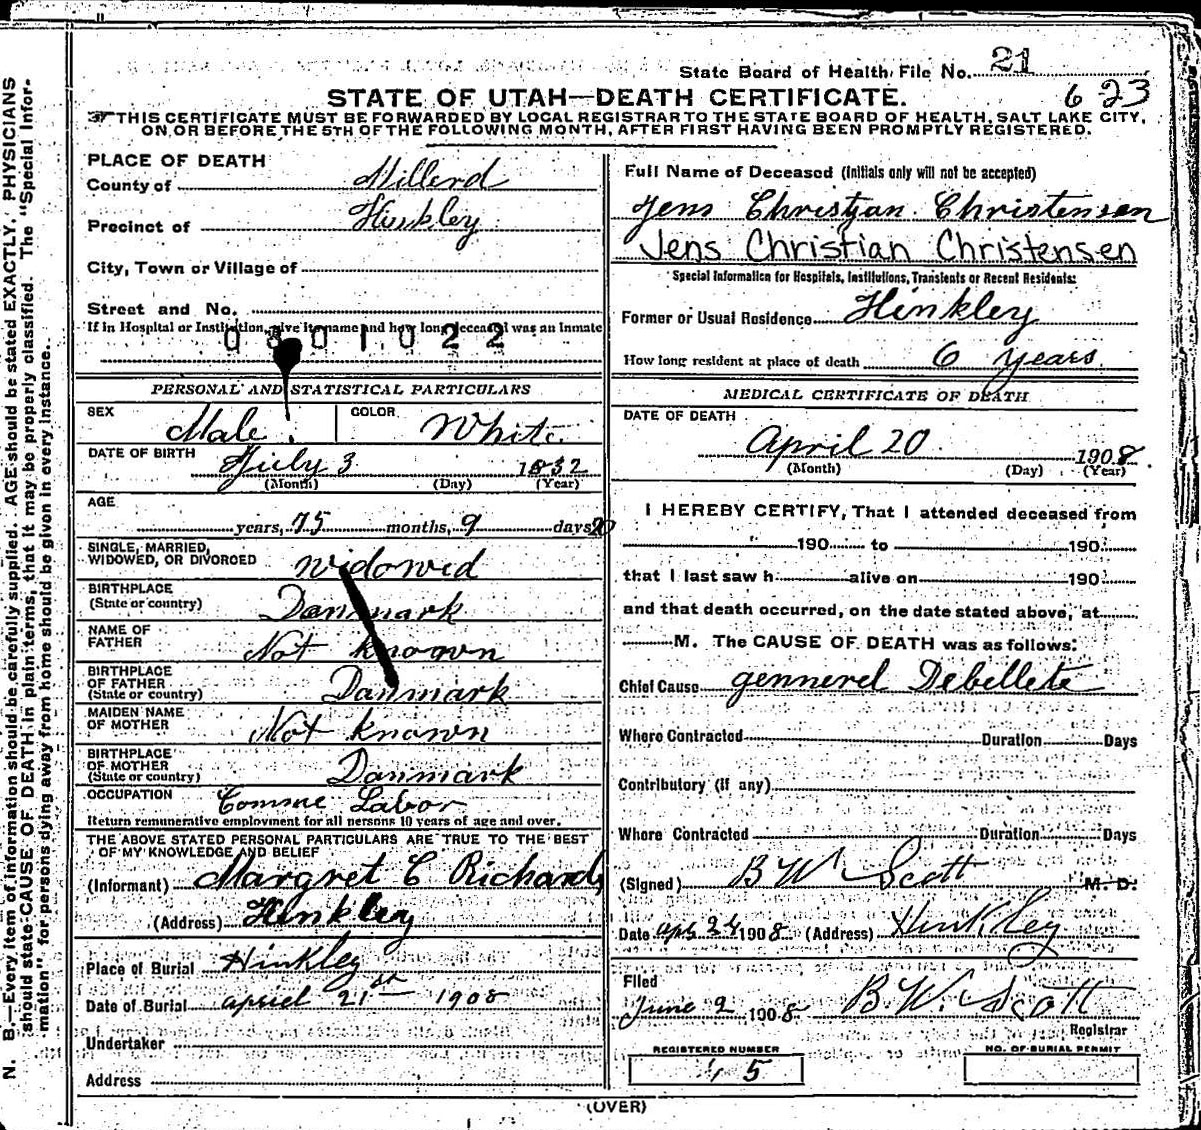 State Board of Health File No. 21
623
STATE OF UTAH—DEATH CERTIFICATE.
THIS CERTIFICATE MUST BE FORWARDED BY LOCAL REGISTRAR TO THE STATE BOARD OF HEALTH, SALT LAKE CITY,
ON OR BEFORE THE 5TH OF THE FOLLOWING MONTH, AFTER FIRST HAVING BEEN PROMPTLY REGISTERED.
PLACE OF DEATH
County of Millerd
Precinct of Hinkley
City, Town or Village of
Street and No.
If in Hospital or Institution, give its name and how long deceased was an inmate
0301022
PERSONAL AND STATISTICAL PARTICULARS
SEX Male COLOR White
DATE OF BIRTH July 3 1832
(Month) (Day) (Year)
AGE
years, 75 months, 9 days 20
SINGLE, MARRIED,
WIDOWED, OR DIVORCED widowed
BIRTHPLACE
(State or country) Danmark
NAME OF
FATHER Not known
BIRTHPLACE
OF FATHER
(State or country) Danmark
MAIDEN NAME
OF MOTHER Not known
BIRTHPLACE
OF MOTHER
(State or country) Danmark
OCCUPATION Comme Labor
Return remunerative employment for all persons 10 years of age and over.
THE ABOVE STATED PERSONAL PARTICULARS ARE TRUE TO THE BEST
OF MY KNOWLEDGE AND BELIEF
(Informant) Margret C Richards
(Address) Hinkley
Place of Burial Hinkley
Date of Burial apriel 21st 1908
Undertaker
Address
Full Name of Deceased (Initials only will not be accepted)
Jens Christjan Christensen
Jens Christian Christensen
Special Information for Hospitals, Institutions, Transients or Recent Residents:
Former or Usual Residence Hinkley
How long resident at place of death 6 years
MEDICAL CERTIFICATE OF DEATH
DATE OF DEATH
April 20 1908
(Month) (Day) (Year)
I HEREBY CERTIFY, That I attended deceased from
190 to 190
that I last saw h alive on 190
and that death occurred, on the date stated above, at
M. The CAUSE OF DEATH was as follows:
Chief Cause gennerel Debellete
Where Contracted Duration Days
Contributory (if any)
Where Contracted Duration Days
(Signed) B W Scott M. D.
Date apr 24 1908 (Address) Hinkley
Filed
June 2 1908 B. W. Scott
Registrar
REGISTERED NUMBER
15
NO. OF BURIAL PERMIT
(OVER)
N. B.—Every item of information should be carefully supplied. AGE should be stated EXACTLY. PHYSICIANS
should state CAUSE OF DEATH in plain terms, that it may be properly classified. The "Special Infor-
mation" for persons dying away from home should be given in every instance.